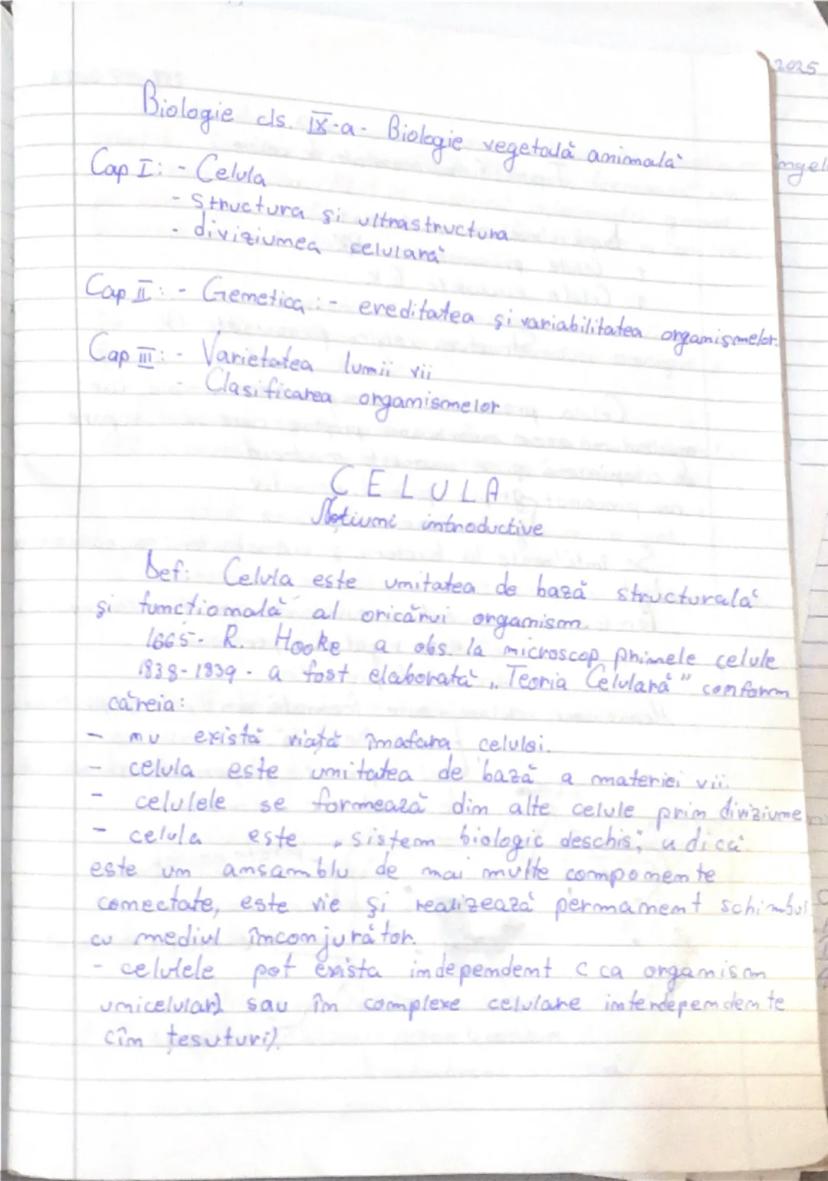 2025
Biologie cls. IX-a - Biologie vegetală animală
Cap I: - Celula
- structura și ultrastructura
- diviziunea celulară
Cap II: - Genetica: - ereditatea și variabilitatea organismelor.
Cap III: - Varietatea lumii vii
Clasificarea organismelor
CELULA
Noțiuni introductive
Def: Celula este unitatea de bază structurală
și funcțională al oricărui organism.
1665- R. Hooke a obs. la microscop primele celule
1838-1839 - a fost elaborată „Teoria Celulară" conform
căreia:
- nu există viață înafara celulei.
- celula este unitatea de bază a materiei vii.
- celulele se formează din alte celule prin diviziune
- celula este „sistem biologic deschis", adică
este un ansamblu de mai multe componente
conectate, este vie și realizează permanent schimbul
cu mediul înconjurător.
- celulele pot exista independent (ca organism
unicelular) sau în complexe celulare interdependente
(în țesuturi).